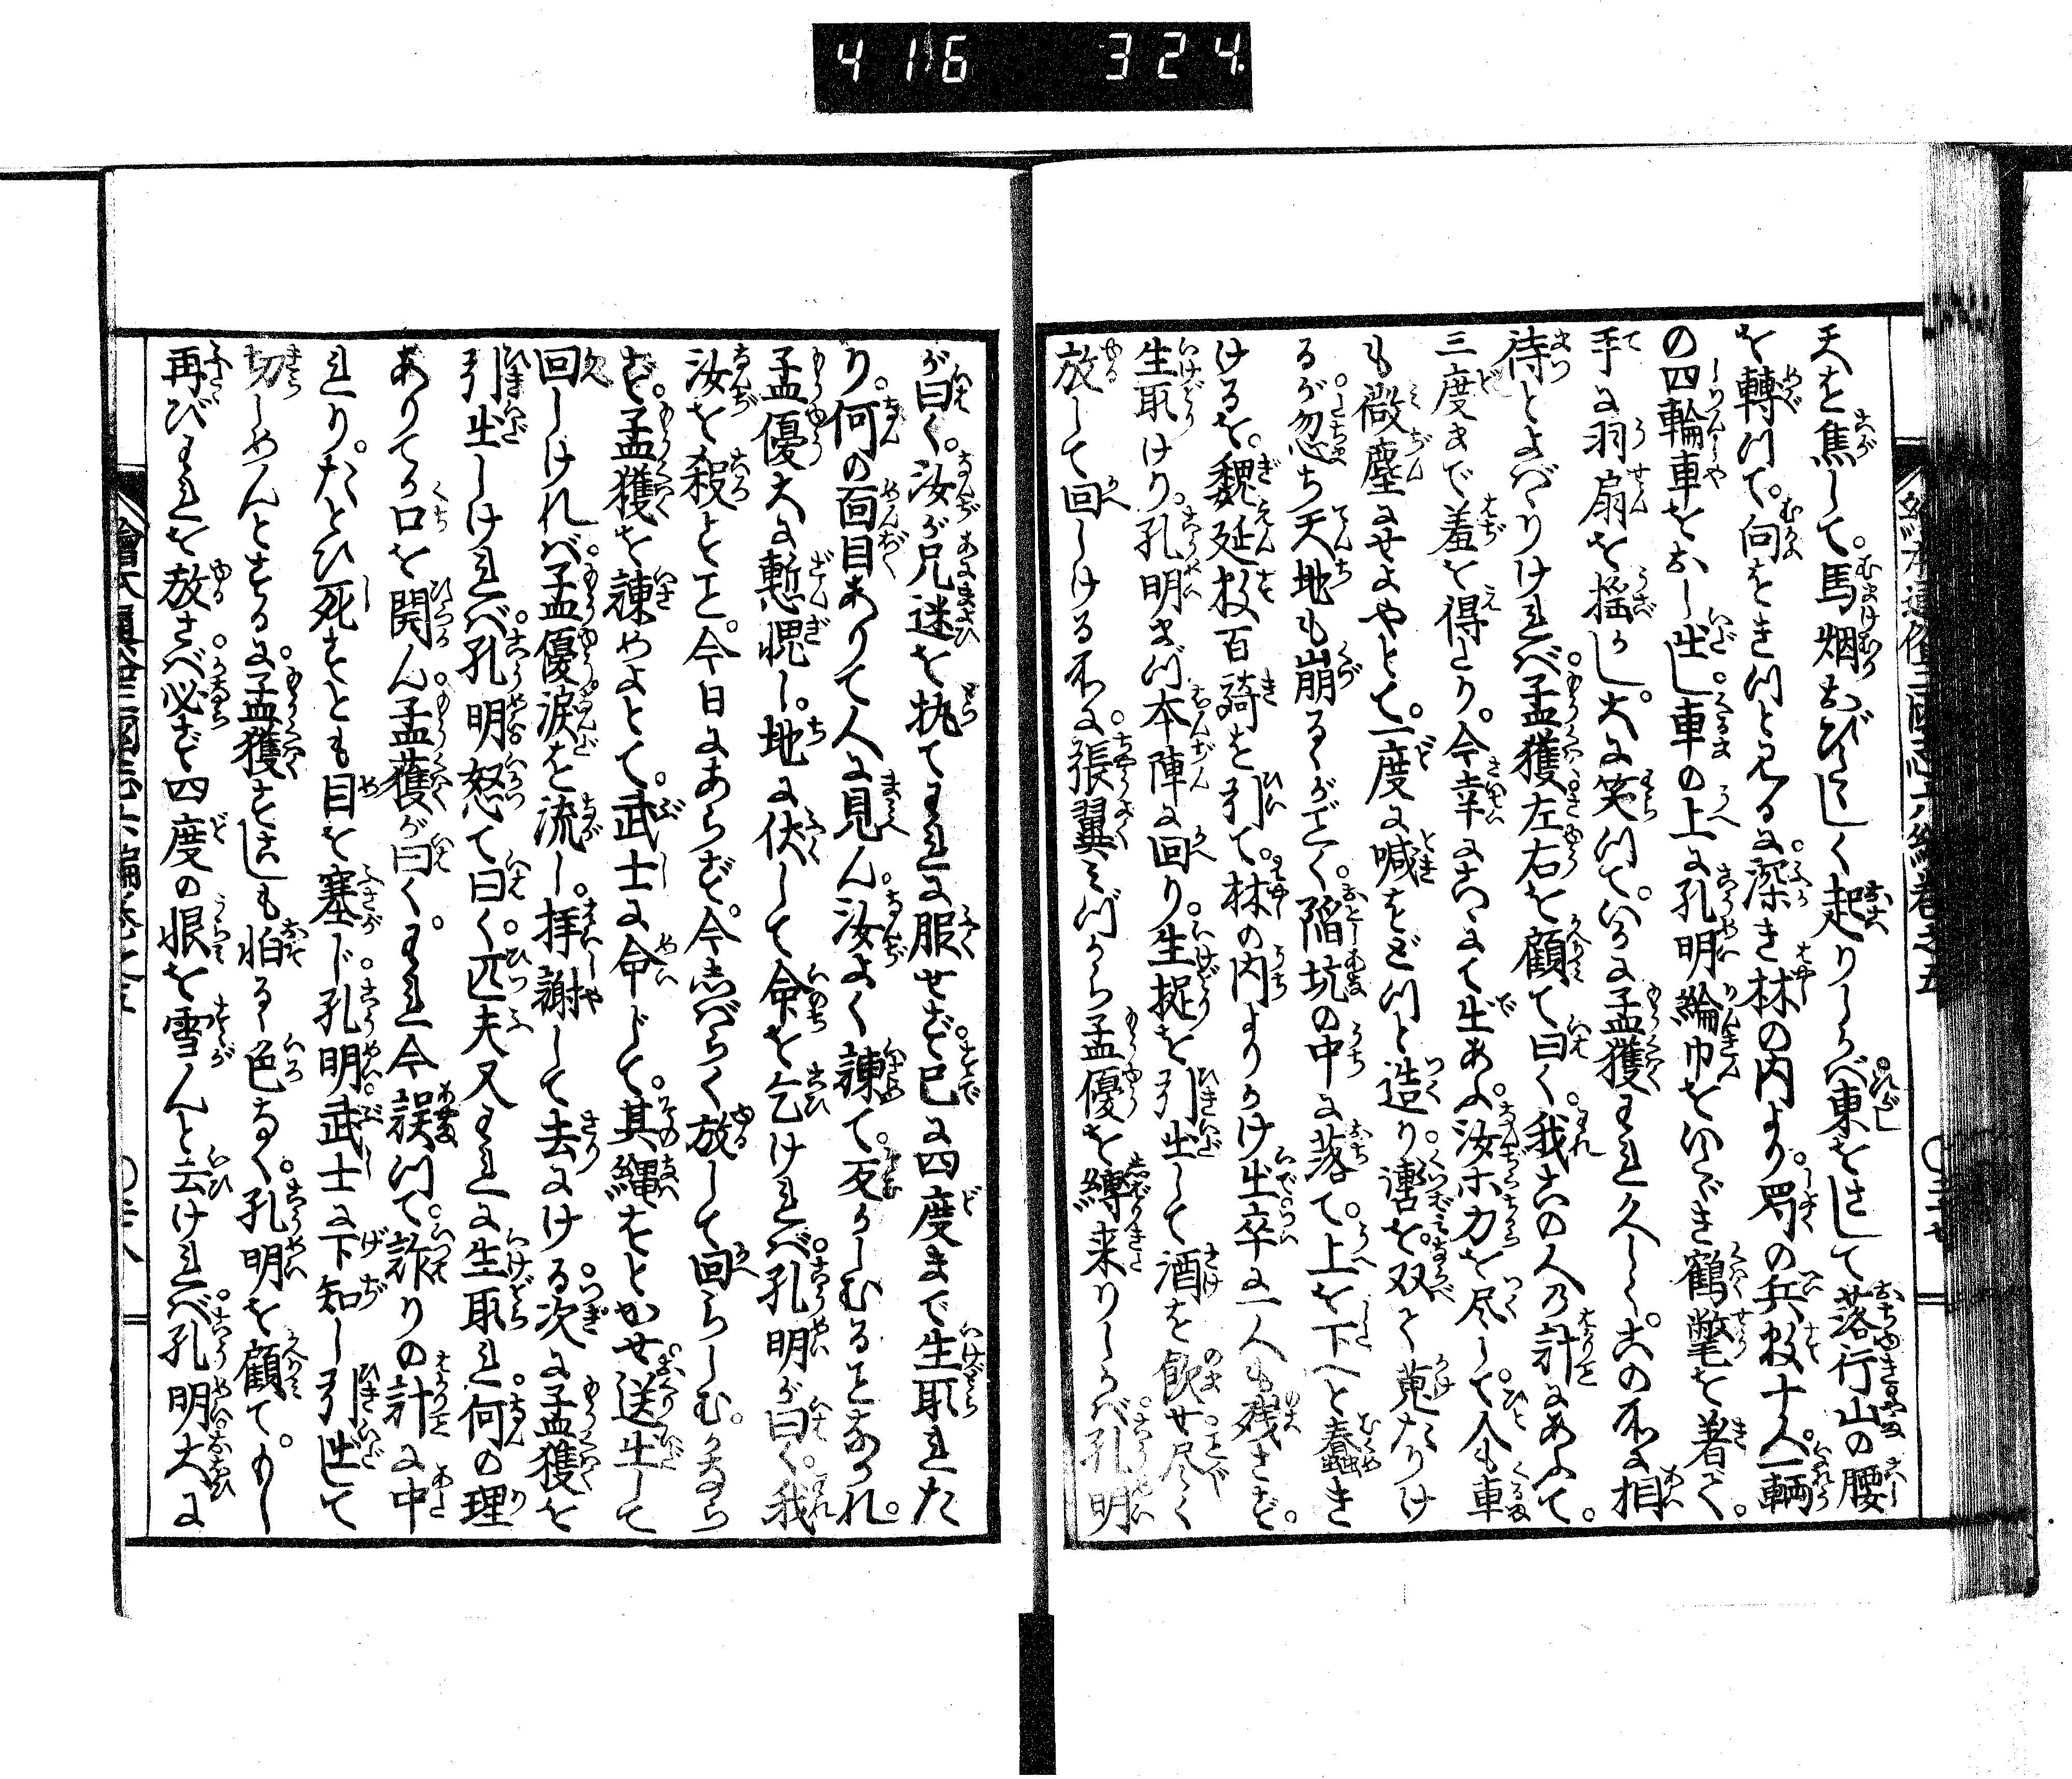 416 324
繪本通俗三國志六編巻之五
天を焦して。馬烟おびたゝしく起りしかべ東をさして落行山の腰
を轉つて。向をきつと見るに。深き林の内より。蜀の兵数十人。一輌
の四輪車をおし出し。車の上に孔明綸巾をいたゞき鶴氅を着て。
手に羽扇を揺かし。大に笑つて。いかに孟獲われ久しくこの所に相
待とよばゝりければ。孟獲左右を顧て曰く。我この人の計にあふて。
三度まで羞を得たり。今幸にこゝにて出あふ。汝等力を尽して。人も車
も微塵にせよやとて。一度に喊をどつと造り。轡を双て蒐たりけ
るが。忽ち天地も崩るゝがごとく。陥坑の中に落て。上を下へと蠢き
けるを。魏延数百騎を引て。林の内よりかけ出卒に一人も残さず。
生取けり。孔明まづ本陣に回り。生捉を引出して酒を飲せ。尽く
放して回しける所に。張翼みづから孟優を縛来りしかば。孔明
が曰く。汝が兄迷を執てわれに服せず。已に四度まで生取れた
り。何の面目ありて人に見ん。汝よく諌て。反かしむることなかれ。
孟優大に慙愧し。地に伏して命を乞ければ。孔明が曰く。我
汝を殺こと。今日にあらず。今しばらく放して回らしむ。かなら
ず。孟獲を諌めよとて。武士に命じて。其縄をとかせ。送出して
回しけれバ。孟優涙を流し。拝謝して去にける。次に孟獲を
引出しければ。孔明怒て曰く。匹夫又われに生取れ。何の理
ありてか口を開ん。孟獲が曰く。われ今誤つて。詐りの計に中
れり。たとひ死すとも目を塞じ。孔明。武士に下知し引出して
切しめんとするに。孟獲すこしも怕るゝ色なく。孔明を顧て。もし
再びわれを放さば。必ず四度の恨を雪んと云ければ。孔明大に
繪本通俗三國志六編巻之五